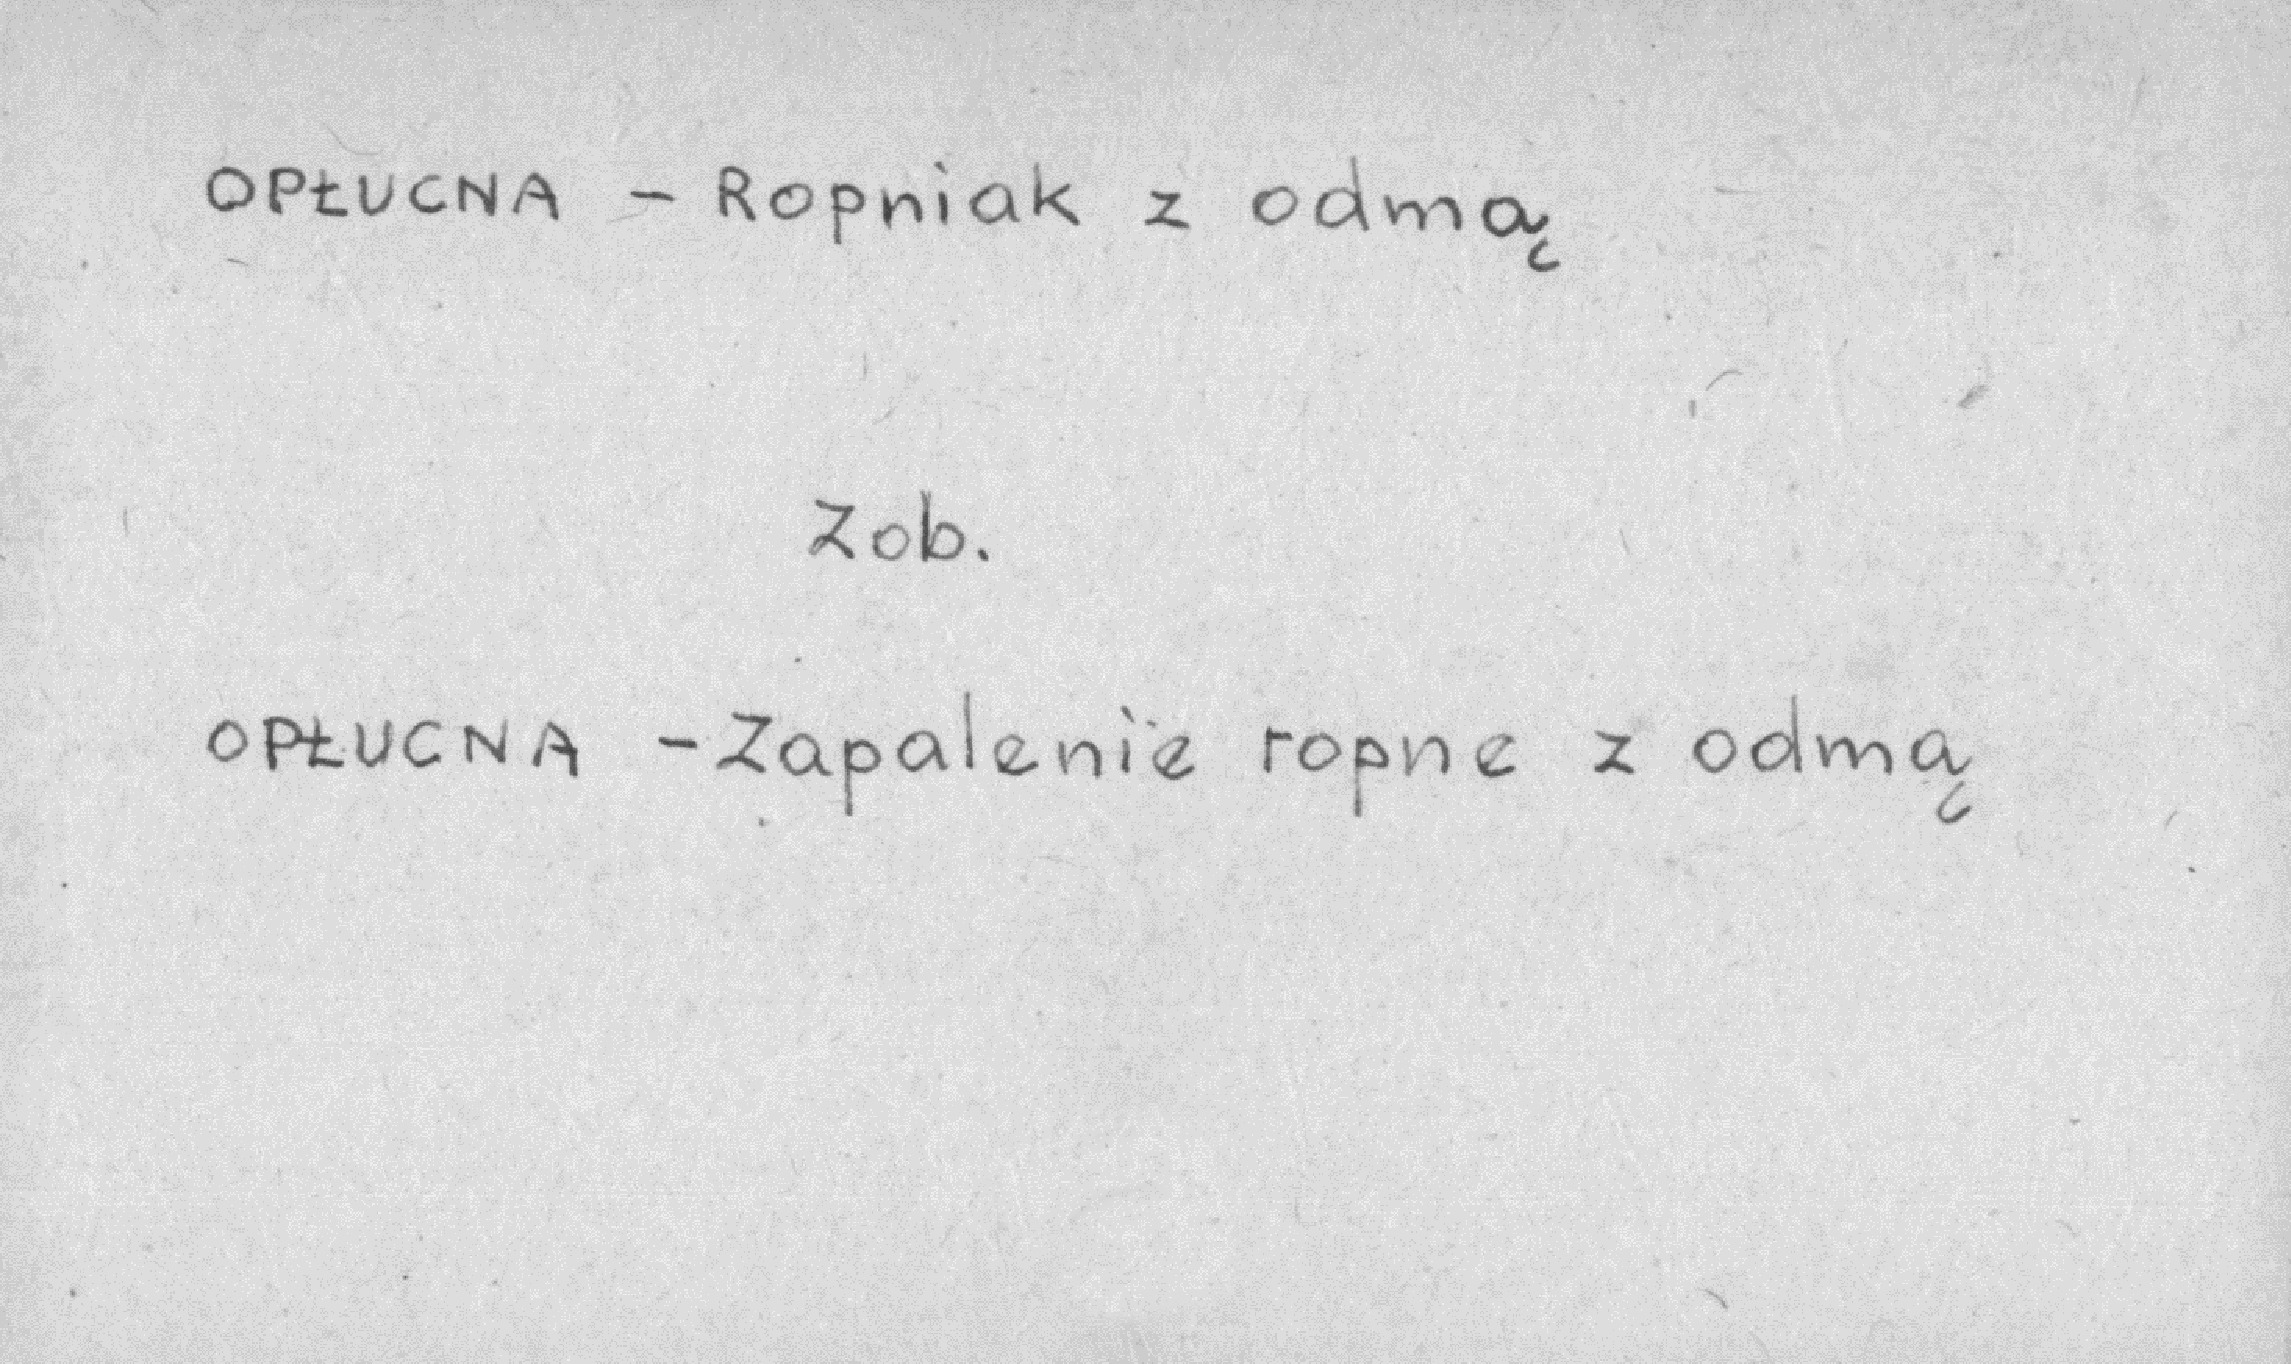 OPŁUCNA - Ropniak z odmą
Zob.
OPŁUCNA - Zapalenie ropne z odmą